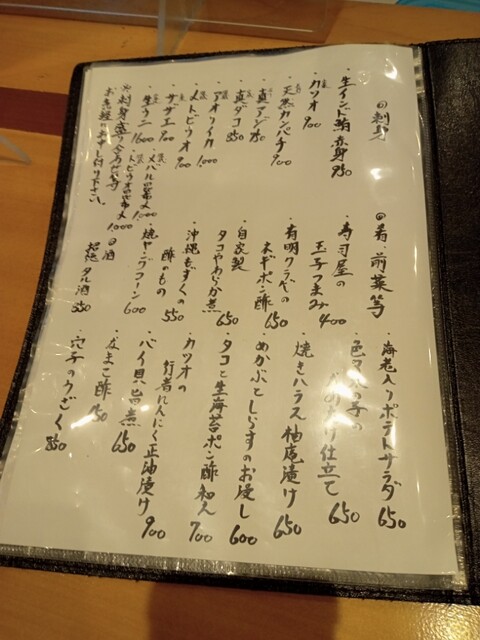 ◎刺身
・生インド鮪赤身 950
・カツオ 900
・天然カンパチ 900
・真アジ 750
・真ダコ 850
・アオリイカ 1,000
・メトビウオ 900
・サザエ 900
・生ウニ 1600
・メバルの昆布〆 1,000
・トビウオの昆布〆 1,000
※刺身盛り合わせ等
お気軽にお申し付け下さい。
◎肴・前菜等
・寿司屋の
玉子つまみ 400
・有明クラゲの
ネギポン酢 650
・自家製
タコやわらか煮 650
・沖縄もずくの
酢のもの 550
・焼ヤングコーン 600
◎酒
タル酒 550
・海老入りポテトサラダ 650
仕立て 650
・焼きハラス柚庵漬け 650
・めかぶとしらすのお浸し 600
・タコと生海苔ポン酢和え 700
・カツオの
行者にんにく正油漬け 900
・バイ貝旨煮 650
・なまこ酢 750
・穴子のうざく 850